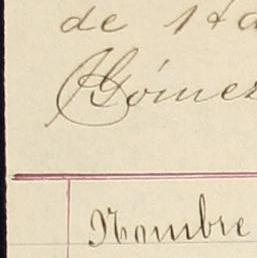 de
Gómez
Nombre